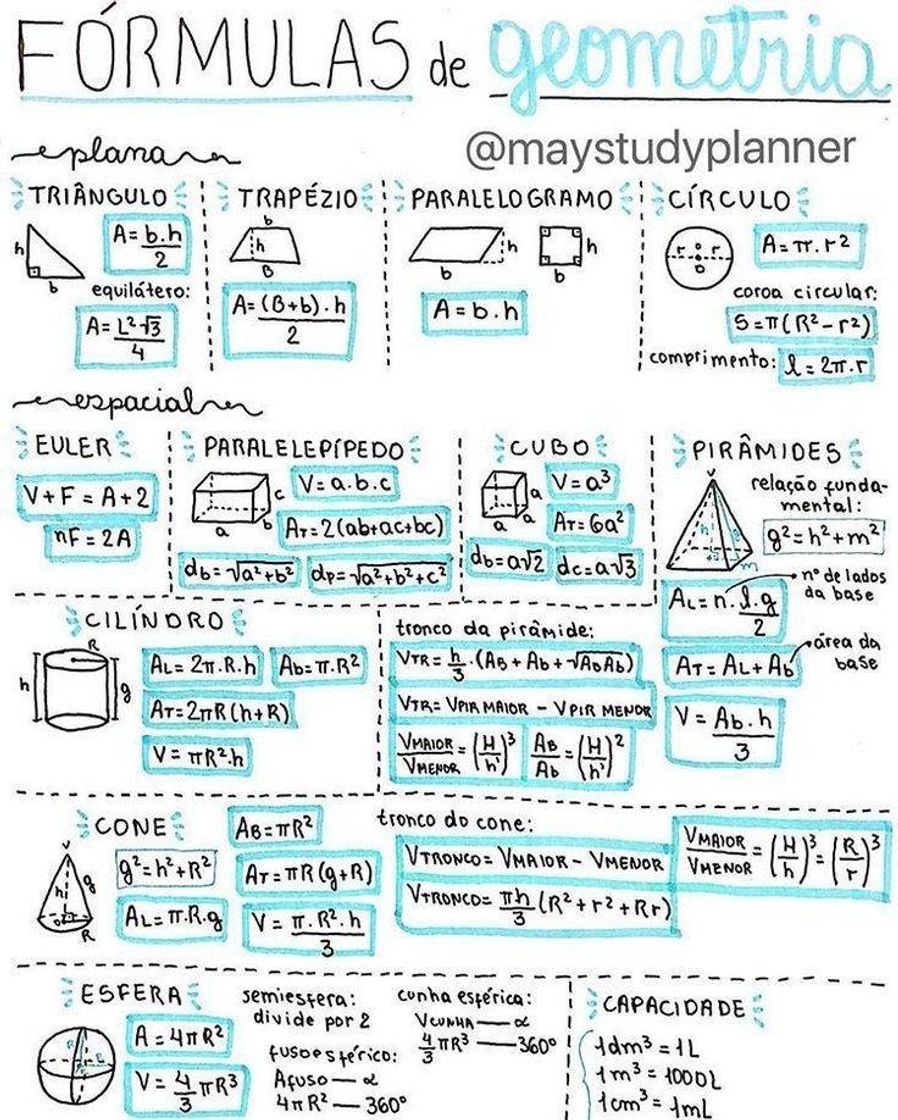 FÓRMULAS de geometria
@maystudyplanner
plana
TRIÂNGULO
h
b
A = b.h/2
equilátero:
A = L²√3/4
TRAPÉZIO
b
h
B
A = (B+b).h/2
PARALELOGRAMO
h
b
h
b
A = b.h
CÍRCULO
r r
D
A = π.r²
coroa circular:
S = π(R²-r²)
comprimento: l = 2π.r
espacial
EULER
V+F = A+2
nF = 2A
PARALELEPÍPEDO
c
b
a
V = a.b.c
AT = 2(ab+ac+bc)
db = √a²+b²
dp = √a²+b²+c²
CUBO
a
a
a
V = a³
AT = 6a²
db = a√2
dc = a√3
PIRÂMIDES
V
h
m
relação funda-
mental:
g² = h²+m²
AL = n.l.g/2
nº de lados
da base
AT = AL + Ab
área da
base
V = Ab.h/3
CILÍNDRO
R
h
g
AL = 2π.R.h
Ab = π.R²
AT = 2πR(h+R)
V = πR².h
tronco da pirâmide:
VTR = h/3.(AB + Ab + √ABAb)
VTR = VPIR MAIOR - VPIR MENOR
VMAIOR/VMENOR = (H/h)³
AB/Ab = (H/h)²
CONE
V
h
g
R
g² = h²+R²
AL = π.R.g
AB = πR²
AT = πR(g+R)
V = π.R².h/3
tronco do cone:
VTRONCO = VMAIOR - VMENOR
VTRONCO = πh/3(R²+r²+Rr)
VMAIOR/VMENOR = (H/h)³ = (R/r)³
ESFERA
A = 4πR²
V = 4/3πR³
semiesfera:
divide por 2
fuso esférico:
Afuso — α
4πR² — 360°
cunha esférica:
VCUNHA — α
4/3πR³ — 360°
CAPACIDADE
1dm³ = 1L
1m³ = 1000L
1cm³ = 1mL